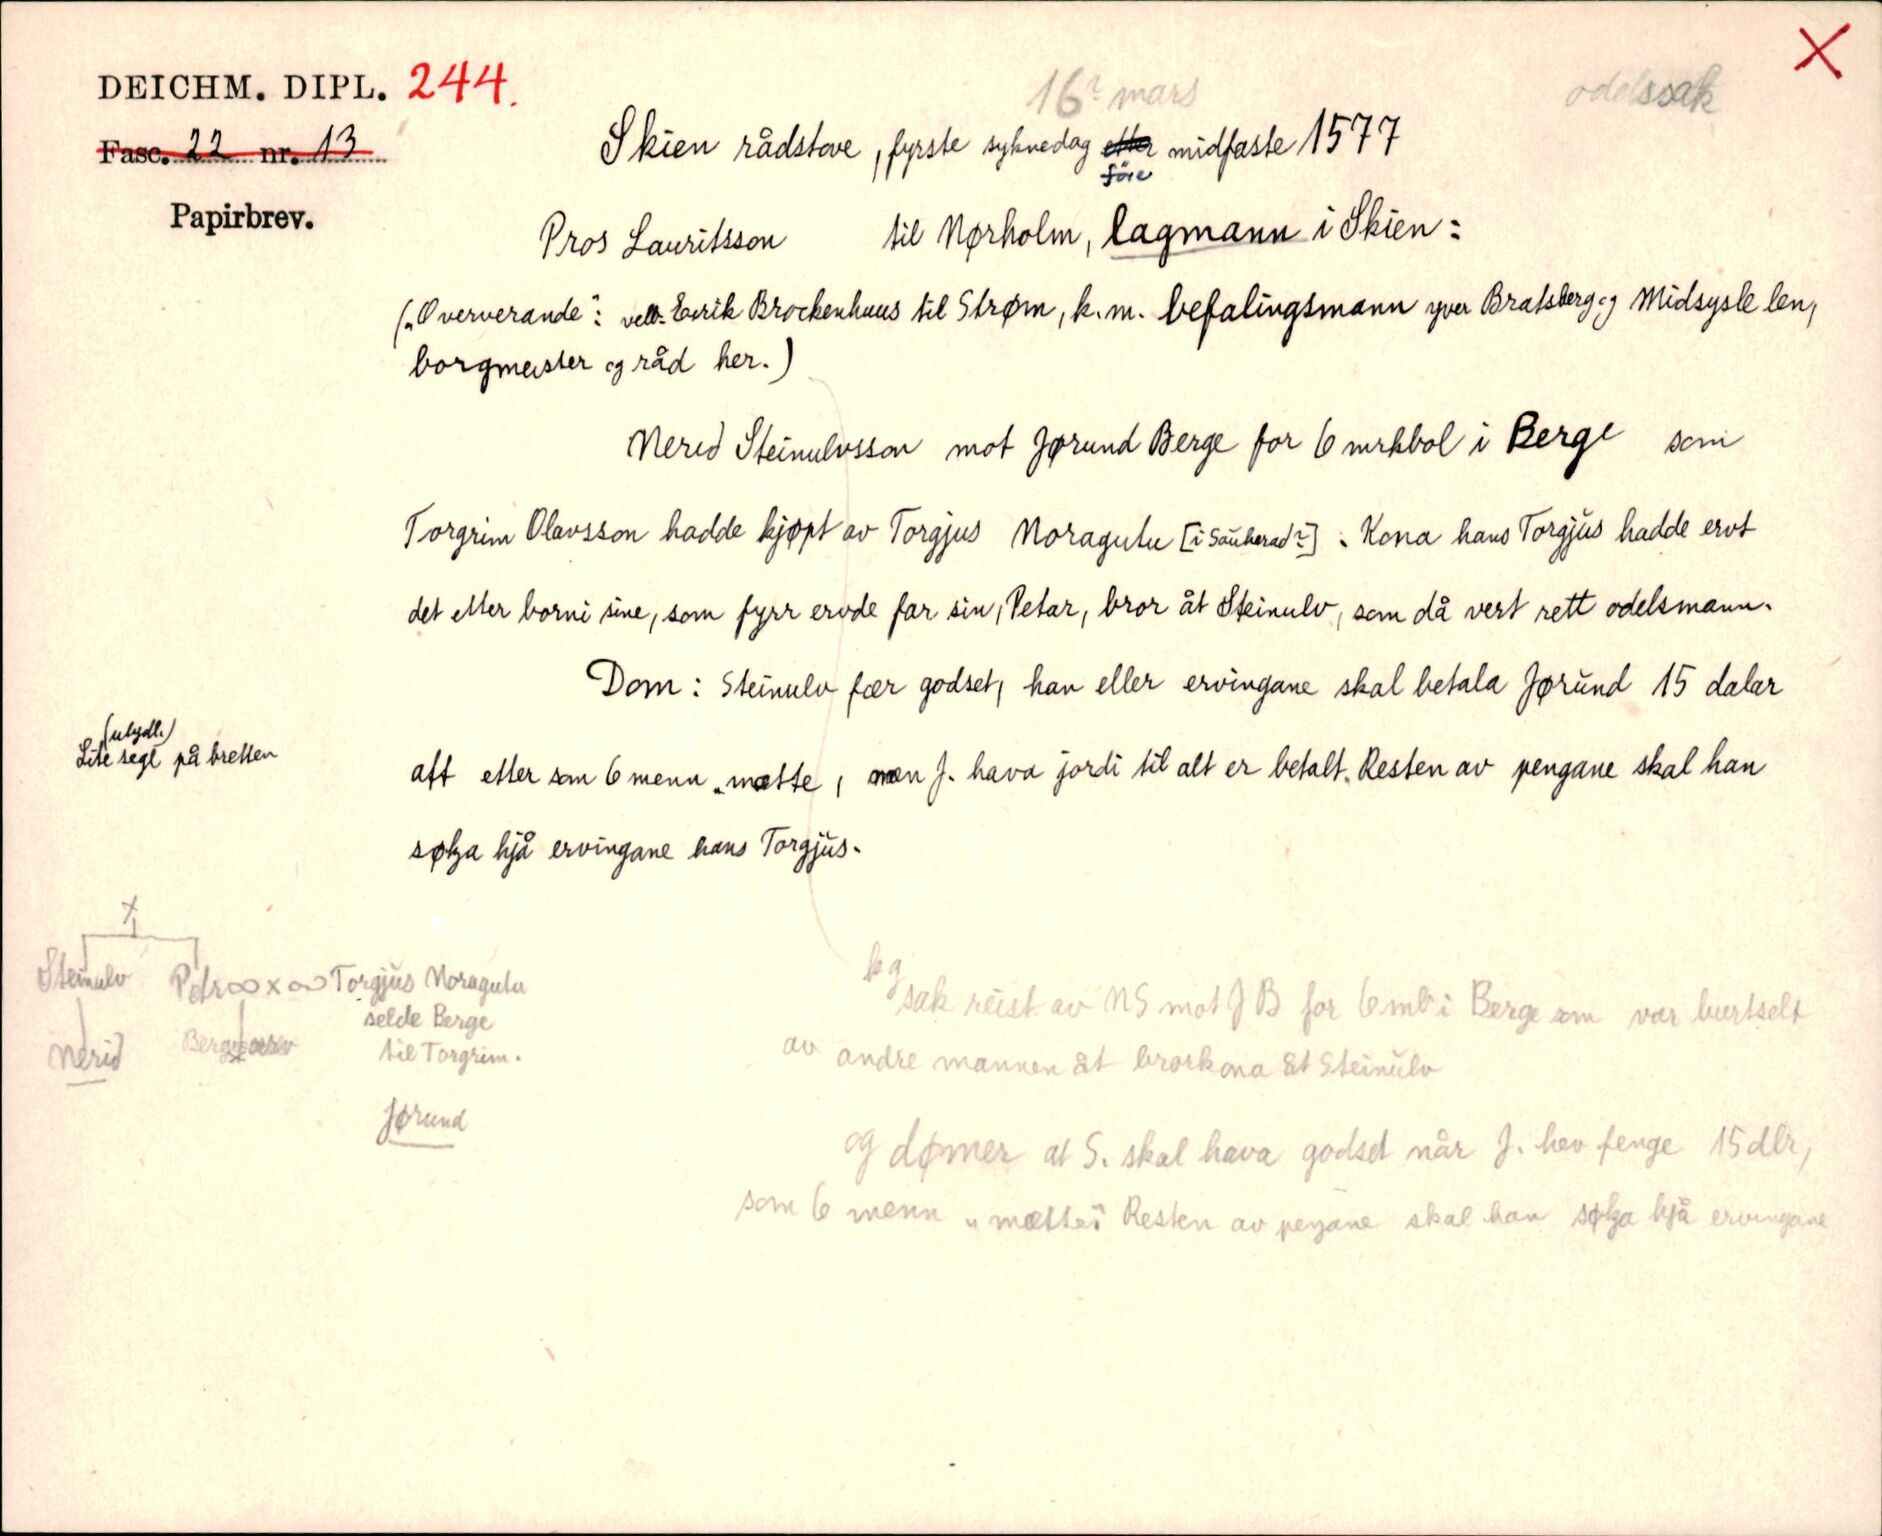 DEICHM. DIPL. 244.
Fasc. 22 nr. 13
Papirbrev.
16? mars
odelssak
Skien rådstove, fyrste syknedag etter midfaste 1577
före
Pros Lauritsson til Nørholm, lagmann i Skien:
("Oververande": velb. Eirik Brockenhuus til Strøm, k.m. befalingsmann yver Bratsberg og Midsysle len,
borgmeister og råd her.)
Nerid Steinulvsson mot Jørund Berge for 6 mrkbol i Berge som
Torgrim Olavsson hadde kjøpt av Torgjus Noragutu [i Sauherad?]. Kona hans Torgjus hadde ervt
det etter borni sine, som fyrr ervde far sin, Petar, bror åt Steinulv, som då vert rett odelsmann.
Dom: Steinulv fær godset, han eller ervingane skal betala Jørund 15 dalar
att etter som 6 menn "mætte, men J. hava jordi til alt er betalt. Resten av pengane skal han
søkja hjå ervingane hans Torgjus.
(utydl.)
Lite segl på bretten
x
Steinulv Petr ∞ x ∞ Torgjus Noragutu
selde Berge
til Torgrim.
Nerid Berge
x
Jørund
kg
sak reist av NS mot J B for 6 mb i Berge som var burtselt
av andre mannen åt brorkona åt Steinulv
og dømer at S. skal hava godset når J. hev fenge 15 dlr,
som 6 menn "mætte" Resten av pengane skal han søkja hjå ervingane